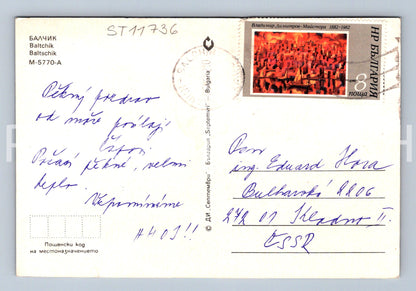 ST11736
БАЛЧИК
Baltchik
Baltschik
М-5770-А
Pěkný pozdrav
od moře posílají
Počasí pěkné, velmi
teplo.
Vzpomínáme
AHOJ!!
Пощенски код
на местоназначението
© ДИ „Септември“ България „September“ Bulgaria
Владимир Димитров-Майстора 1882-1982
НР БЪЛГАРИЯ
8
поща
Pan
ing. Eduard Hora
Bulharská 2206
272 01 Kladno II.
ČSSR